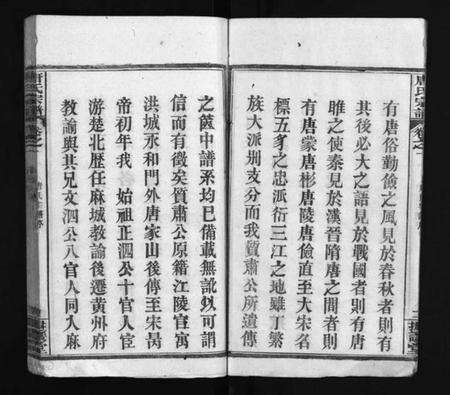 有唐俗勤儉之風見於春秋者則有
其後必大之語見於戰國者則有唐
雎之使秦見於漢晉隋唐之間者則
有唐蒙唐彬唐陵唐儉直至大宋名
標五豸之忠派衍三江之地雖丁繁
族大派別支分而我質肅公所遺傳
之篋中譜系均已備載無訛以可謂
信而有徵矣質肅公原籍江陵官寓
洪城永和門外唐家山後傳至宋昺
帝初年我 始祖正泗公十官人宦
游楚北歷任麻城教諭後遷黄州府
教諭與其兄文泗公八官人同入麻
唐氏宗譜
卷之一
唐氏宗譜
卷之一